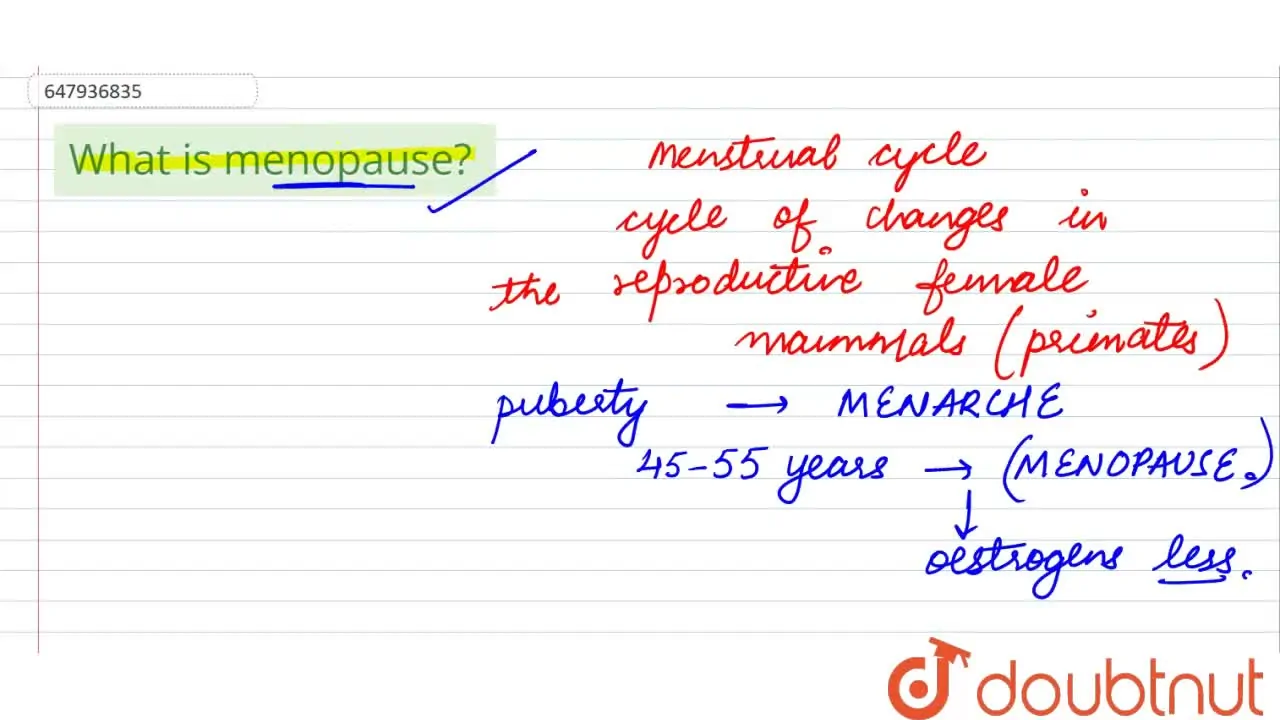 647936835
What is menopause?
Menstrual cycle
cycle of changes in
the reproductive female
mammals (primates)
puberty → MENARCHE
45-55 years → (MENOPAUSE.)
↓
oestrogens less.
doubtnut